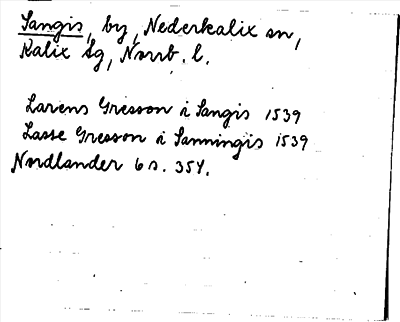 Sangis, by, Nederkalix sn,
Kalix tg, Norrb. l.
Larens Gresson i Sangis 1539
Lasse Gresson i Sanningis 1539
Nordlander 6 s. 354.